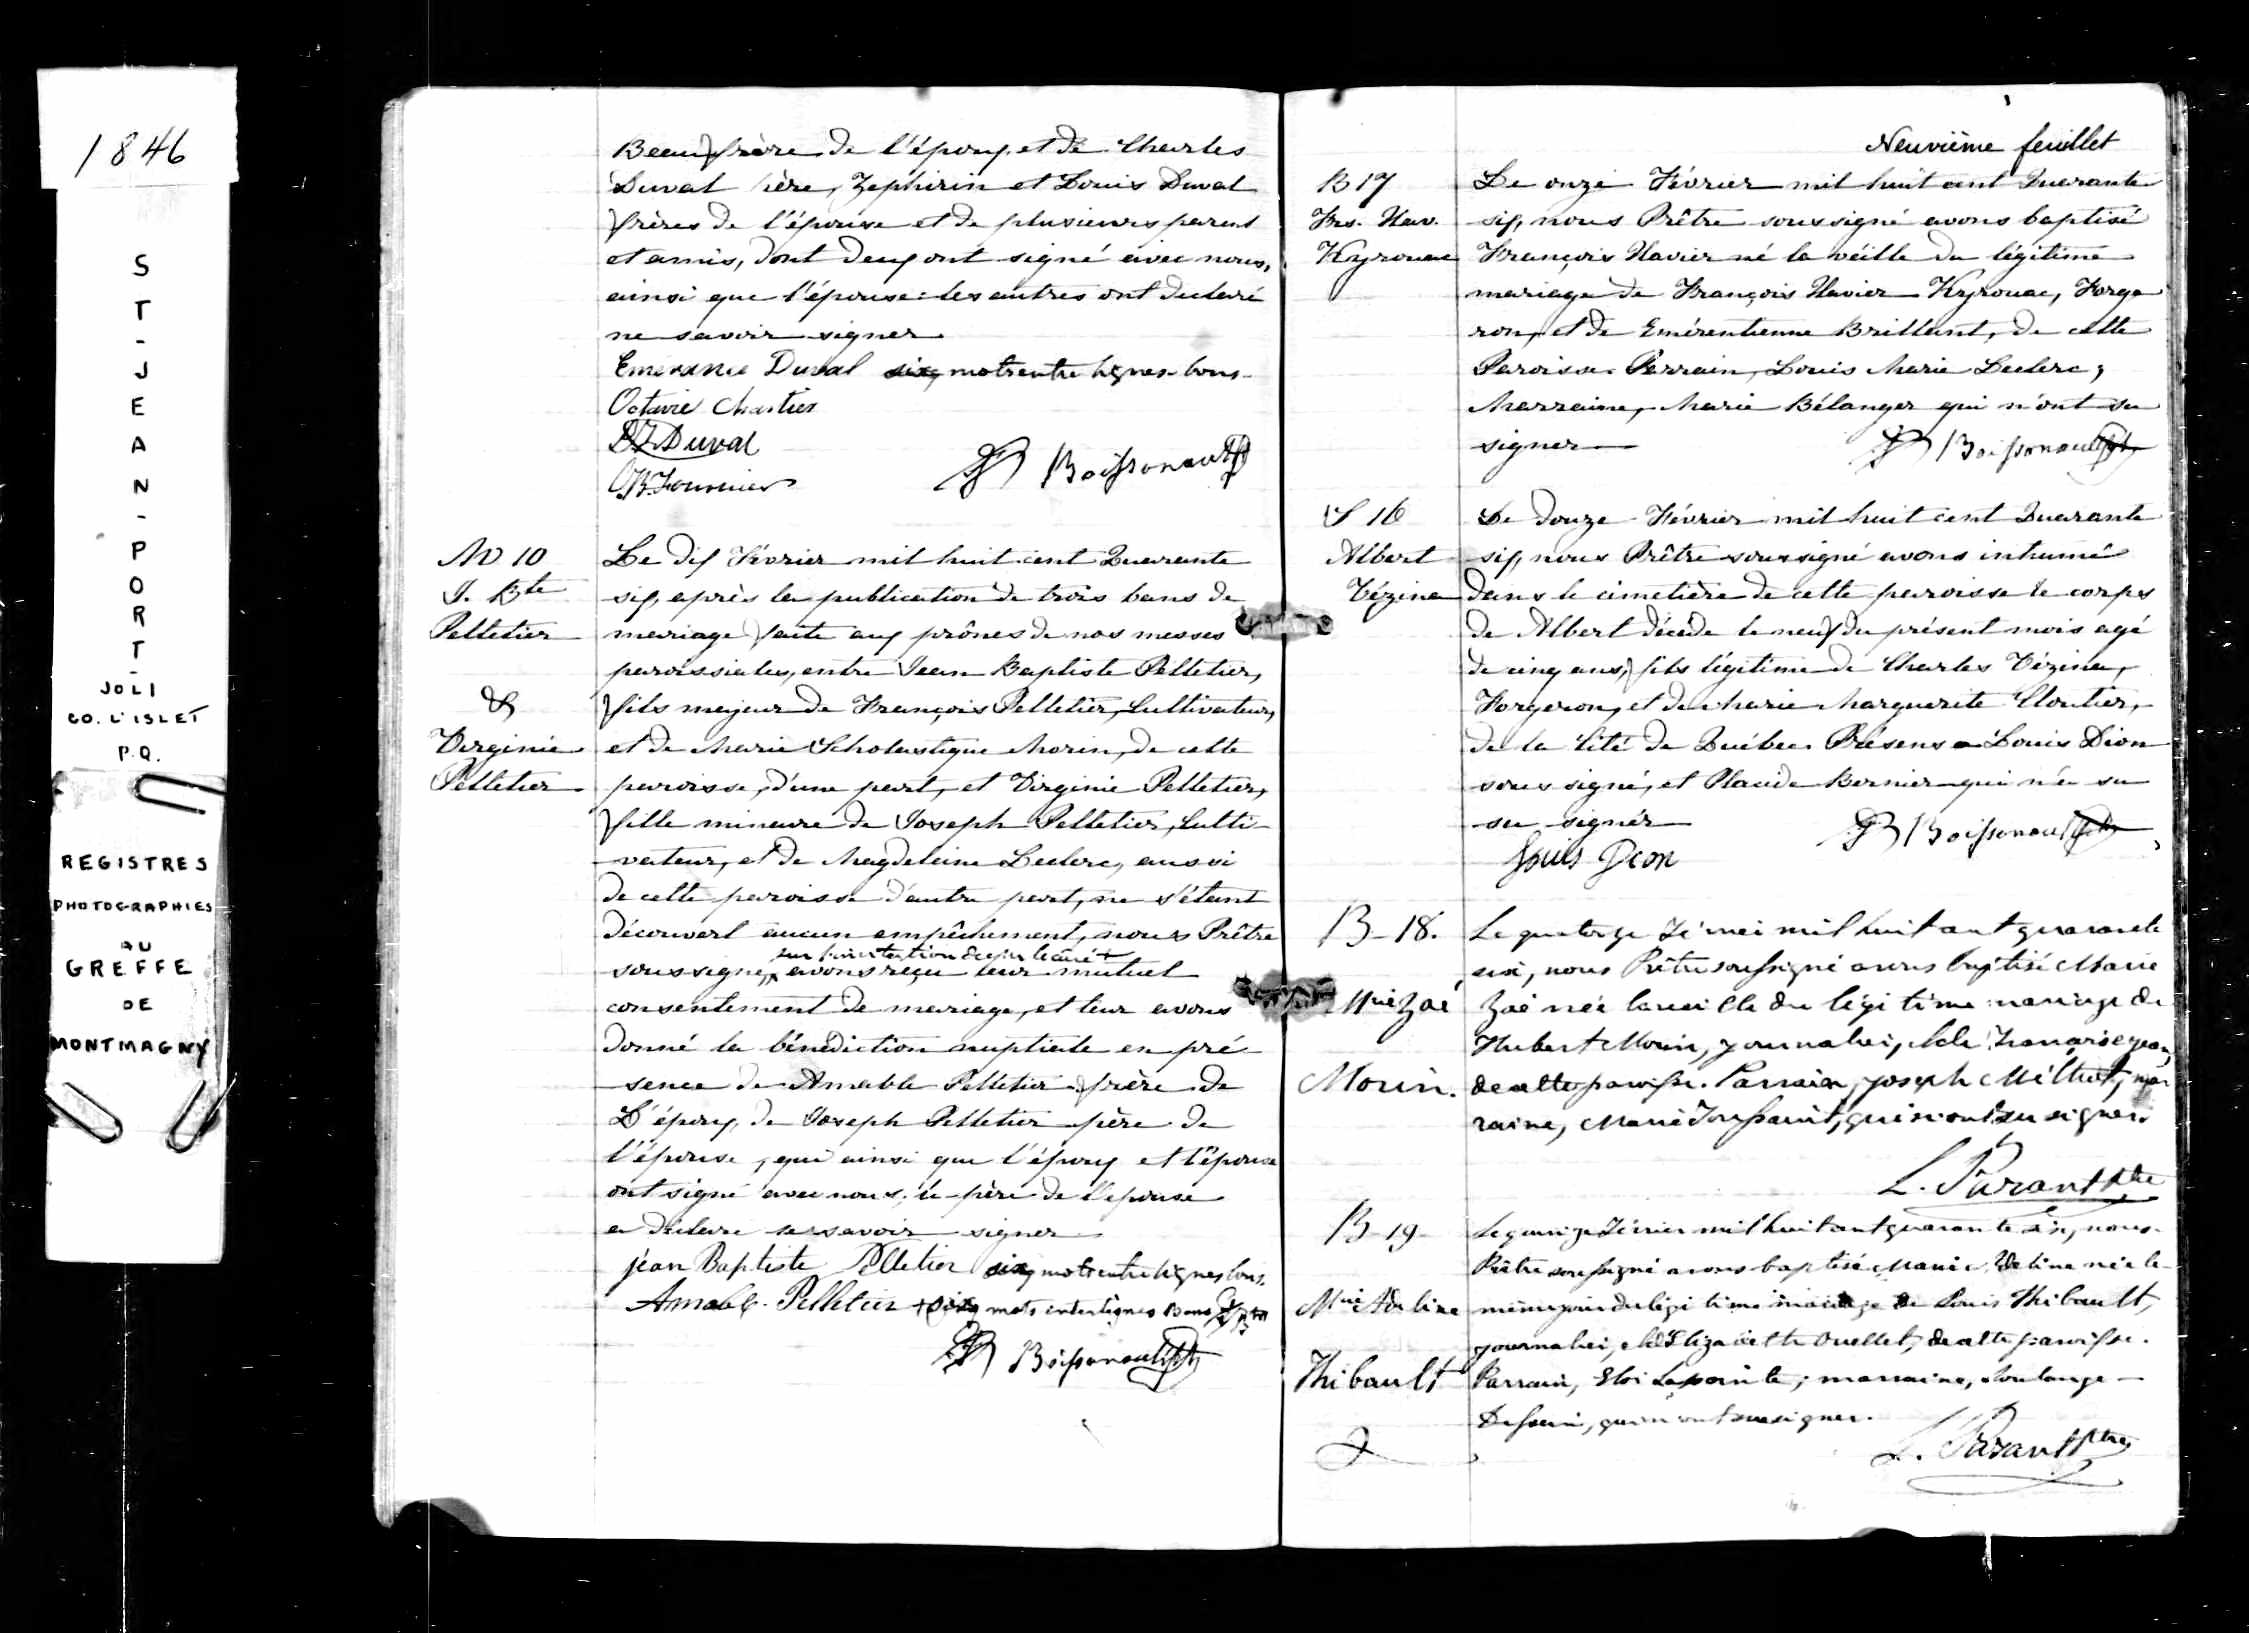 1846
S
T
-
J
E
A
N
-
P
O
R
T
-
JOLI
CO. L'ISLET
P.Q.
REGISTRES
PHOTOGRAPHIES
AU
GREFFE
DE
MONTMAGNY
Beaufrère de l'époux et de Charles
Duval père, Zephirin et Louis Duval
frères de l'épouse et de plusieurs parens
et amis, dont deux ont signé avec nous,
ainsi que l'épouse: les autres ont declaré
ne savoir signer
Emerance Duval six mots entre lignes bons
Octavie Chartier
Duval
Fournier
Boissonault
M 10
J. Bte
Pelletier
&
Virginie
Pelletier
Le dix Février mil huit cent Quarante
six, après la publication de trois bans de
mariage faite aux prônes de nos messes
paroissiales, entre Jean Baptiste Pelletier,
fils majeur de François Pelletier, Cultivateur,
et de Marie Scholastique Morin, de cette
paroisse, d'une part, et Virginie Pelletier,
fille mineure de Joseph Pelletier, Culti-
vateur, et de Magdeleine Leclerc, aussi
de cette paroisse d'autre part, ne s'étant
découvert aucun empêchement, nous Prêtre
soussigné, avons reçu leur mutuel
consentement de mariage, et leur avons
donné la bénédiction nuptiale en pré-
sence de Amable Pelletier frère de
L'époux, de Joseph Pelletier père de
l'épouse, qui ainsi que l'époux et l'épouse
ont signé avec nous; le père de l'épouse
a déclaré ne savoir signer
jean Baptiste Pelletier six mots entre lignes bons.
Amable Pelletier + six mots interlignes bons
Boissonault Ptre
Neuvième feuillet
B 17
Frs. Xav.
Kyrouac
Le onze Février mil huit cent Quarante
six, nous Prêtre soussigné avons baptisé
François Xavier né la veille du légitime
mariage de François Xavier Kyrouac, Forge
ron, et de Emérentienne Brillant, de cette
Paroisse. Parrain, Louis Marie Leclerc,
Marraine, Marie Bélanger qui n'ont su
signer
Boissonault Ptre
S 16
Albert
Vézina
Le douze Février mil huit cent Quarante
six, nous Prêtre soussigné avons inhumé
dans le cimetière de cette paroisse le corps
de Albert décédé le neuf du présent mois agé
de cinq ans, fils légitime de Charles Vézina,
Forgeron, et de Marie Marguerite Cloutier,
de la Cité de Québec. Présens Louis Dion
sous signé, et Placide Bernier qui n'a su
su signer
Boissonault Ptre
Louis Dion
B-18.
Mrie Zoé
Morin.
Le quatorze Février mil huit cent quarante
six, nous Prêtre soussigné avons baptisé Marie
Zoé née la veille du légitime mariage de
Hubert Morin, journalier, & de Françoise Jean,
de cette paroisse. Parrain, Joseph Méthot, mar
raine, Marie Toussaint, qui n'ont su signer.
L. Parant Ptre
B-19-
Mrie Adeline
Thibault
Le quinze Février mil huit cent quarante six, nous
Prêtre soussigné avons baptisé Marie Adeline née le
même jour du légitime mariage de Louis Thibault,
journalier, & d'Elizabeth Ouellet, de cette paroisse.
Parrain, Eloi Lapointe; marraine, Soulange
qui n'ont su signer.
L. Parant Ptre